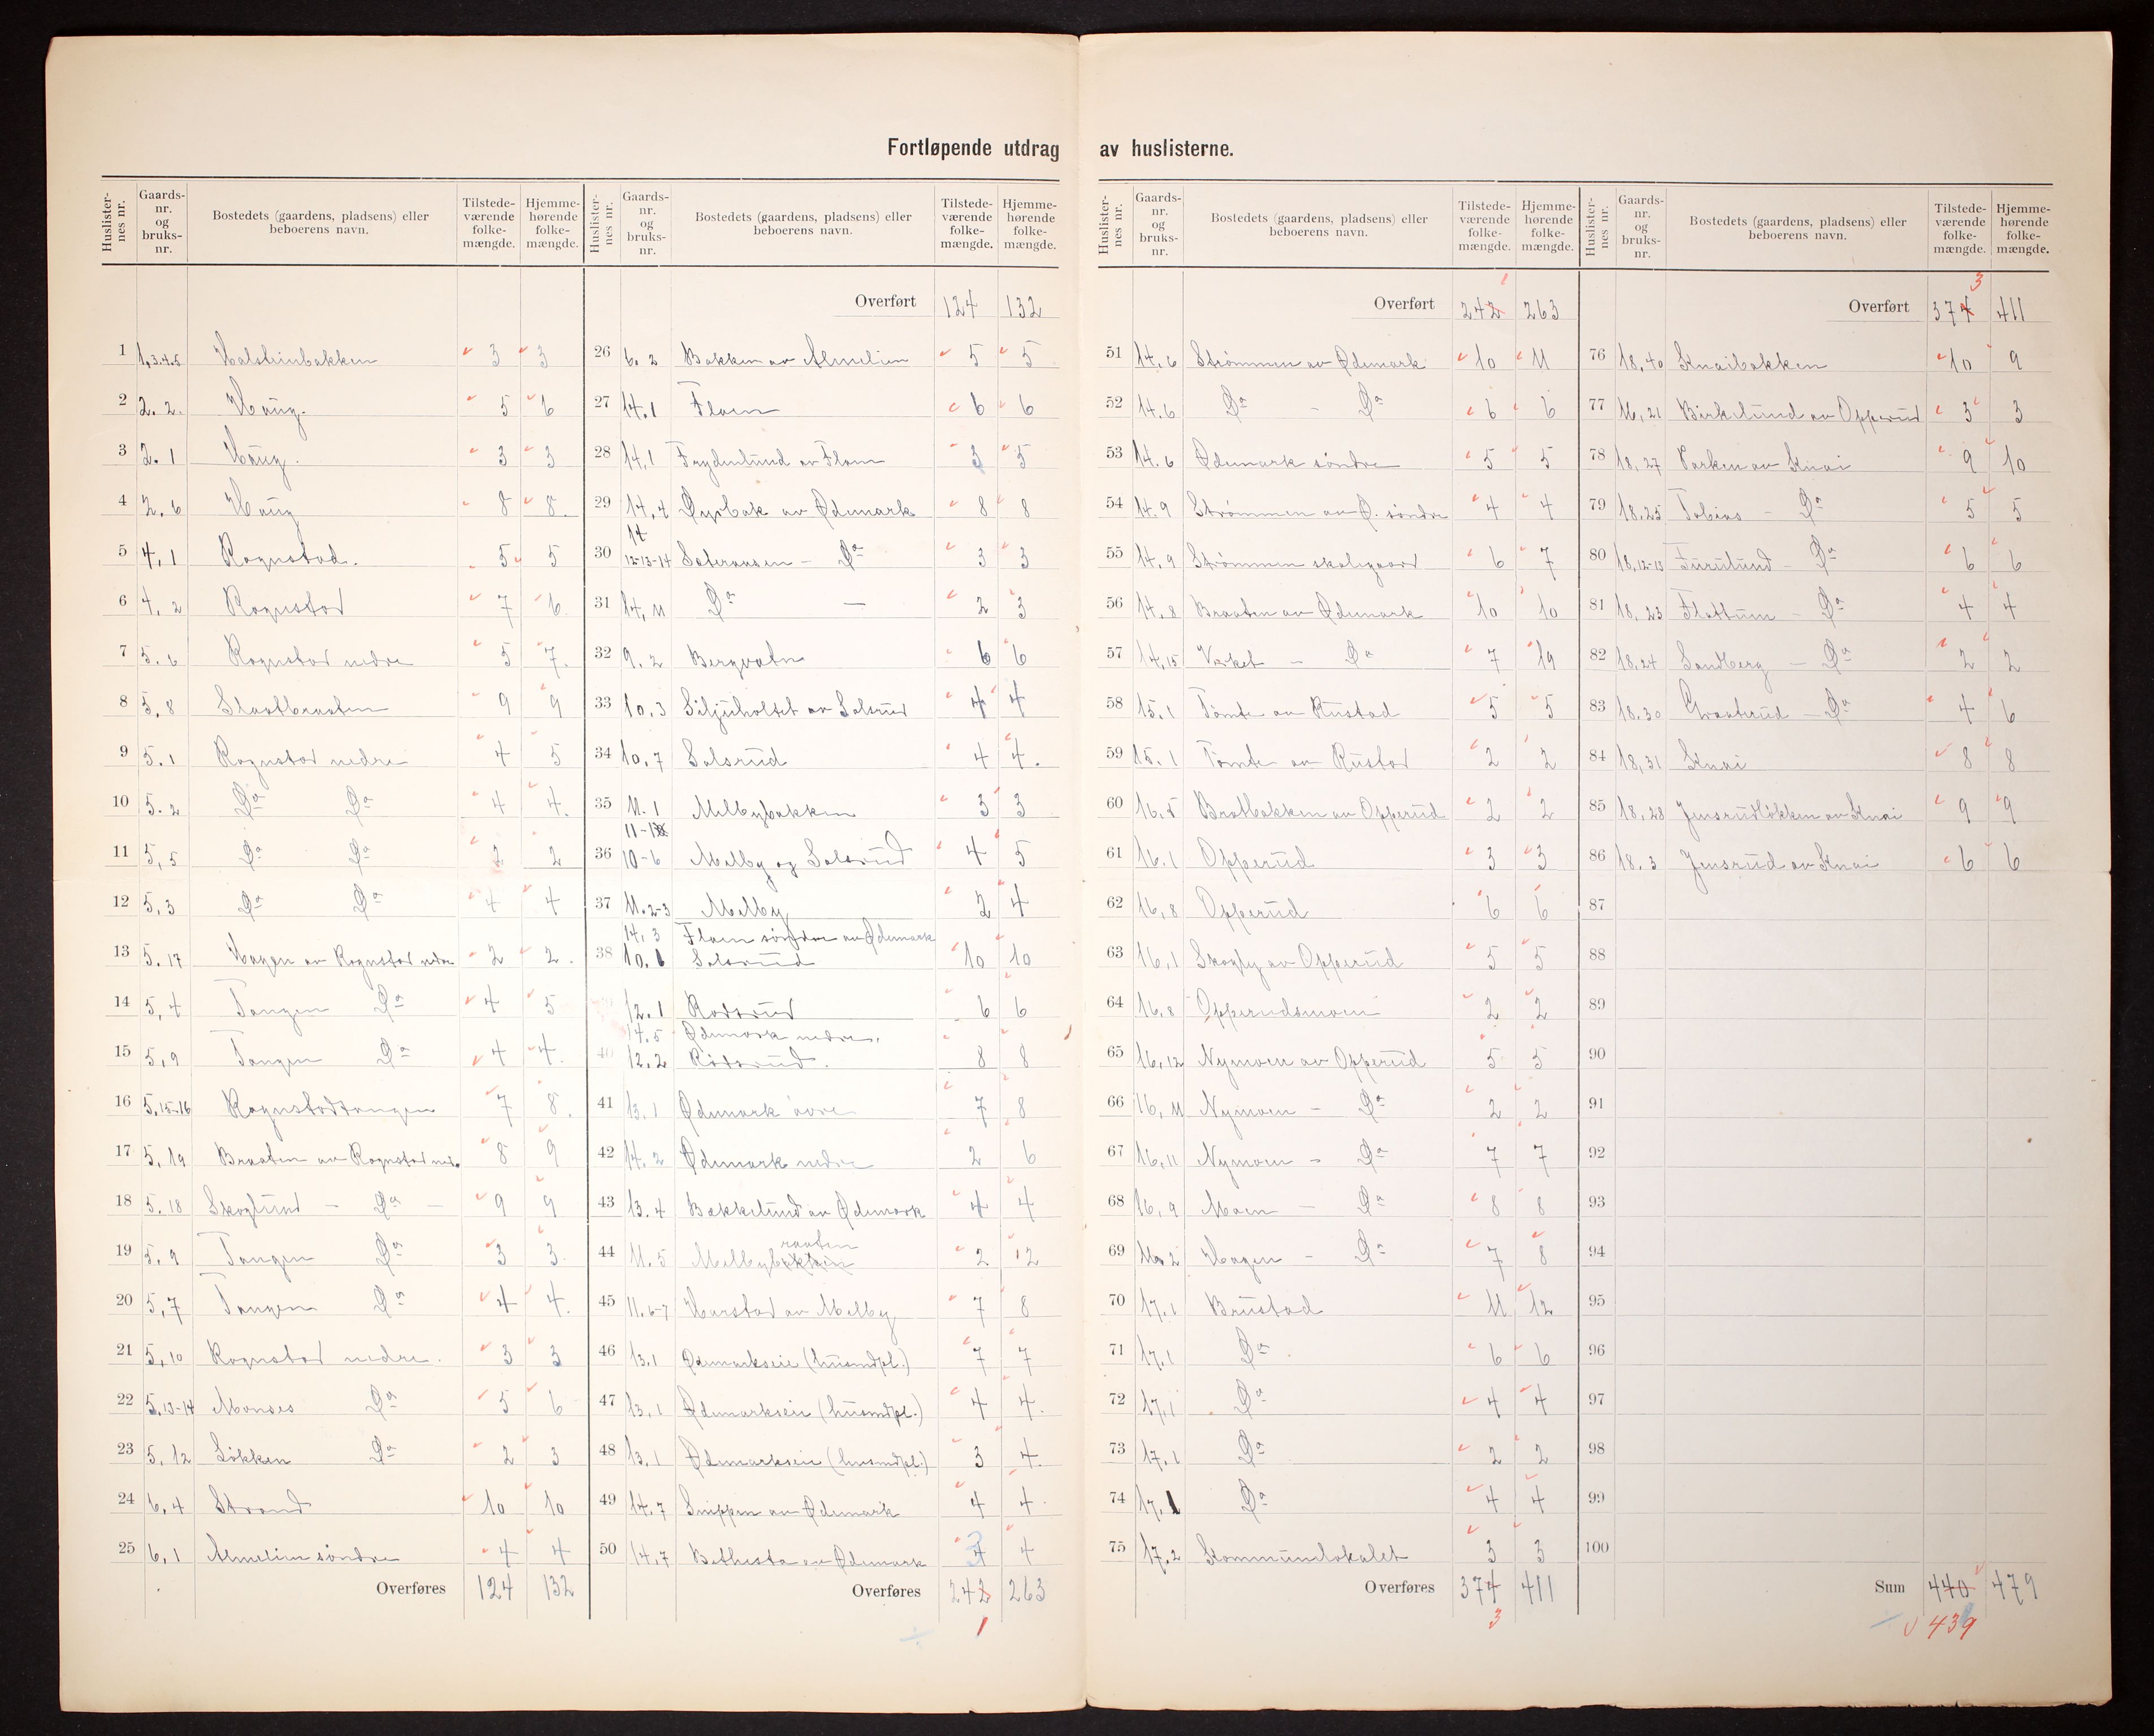 Fortløpende utdrag av huslisterne.
Huslisternes nr. Gaards-nr. og bruks-nr. Bostedets (gaardens, pladsens) eller beboerens navn. Tilstedeværende folkemængde. Hjemmehørende folkemængde.
1 1,3.4.5 Halsteinbakken 3 3
2 2.2. Haug. 5 6
3 2.1 Haug. 3 3
4 2.6 Haug 8 8.
5 4,1 Rognstad. 5 5
6 4,2 Rognstad 7 6
7 5.6 Rognstad nedre 5 7.
8 5,8 Slaatbraaten 9 9
9 5.1 Rognstad nedre 4 5
10 5.2 Do Do 4 4.
11 5,5 Do Do 2 2
12 5,3 Do Do 4 4
13 5.17 Hagen av Rognstad nedre 2 2.
14 5,4 Tangen Do 4 5
15 5,9 Tangen Do 4 4.
16 5,15-16 Rognstadtangen 7 8.
17 5,19 Braaten av Rognstad ned. 8 9
18 5.18 Skoglund – Do – 9 9
19 5.9 Tangen Do 3 3.
20 5,7 Tangen Do 4 4.
21 5,10 Rognstad nedre. 3 3
22 5.13-14 Monses Do 5 6
23 5,12 Løkken Do 2 3
24 6,4 Strand 10 10
25 6,1 Almelien søndre 4 4
Overføres 124 132
Huslisternes nr. Gaards-nr. og bruks-nr. Bostedets (gaardens, pladsens) eller beboerens navn. Tilstedeværende folkemængde. Hjemmehørende folkemængde.
Overført 124 132
26 6.2 Bakken av Almelien 5 5
27 14.1 Flaen 6 6
28 14,1 Frydenlund av Flaen 3 5
29 14,4 Dyrbak av Ødemark 8 8
14
30 12-13-14 Sateraasen – Do 3 3
31 14,11 Do – 2 3
32 9.2 Bergvatn 6 6
33 10.3 Siljuholtet av Solsrud 4 4
34 10.7 Solsrud 4 4.
35 11.1 Melbybakken 3 3
36 10-6 Melby og Solsrud 4 5
37 11.2-3 Melby 2 4
14,3 Flaen søndre av Ødemark
38 10.6 Solsrud 10 10
12.1 Rodsrud 6 6
14.5 Ødemark nedre.
40 12.2 Rodsrud. 8 8
41 13.1 Ødemark øvre 7 8
42 14.2 Ødemark nedre 2 6
43 13.4 Bakkelund av Ødemark 4 4
raaten
44 11.5 Melbybakken 2 12
45 11.6-7 Harstad av Melby 7 8
46 13.1 Ødemarkseie (husmdpl.) 7 7
47 13,1 Ødemarkseie (husmdpl.) 4 4.
48 13.1 Ødemarkseie (husmdpl.) 3 4.
49 14.7 Snippen av Ødemark 4 4
50 14,7 Bethesta av Ødemark 3 4
Overføres 242 263
1
Huslisternes nr. Gaards-nr. og bruks-nr. Bostedets (gaardens, pladsens) eller beboerens navn. Tilstedeværende folkemængde. Hjemmehørende folkemængde.
1
Overført 242 263
51 14.6 Strømmen av Ødemark 10 11
52 14.6 Do – Do 6 6
53 14.6 Ødemark søndre 5 5
54 14.9 Strømmen av Ø. søndre 4 4
55 14.9 Strømmen skolegaard 6 7
56 14.8 Braaten av Ødemark 10 10
57 14,15 Verket – Do 7 19
58 15.1 Tømte av Rustad 5 5
59 15.1 Tømte av Rustad 2 2
60 16.5 Bratbakken av Opperud 2 2
61 16.1 Opperud 3 3
62 16,8 Opperud 6 6
63 16,1 Skogly av Opperud 5 5
64 16.8 Opperudsmoen 2 2
65 16,12 Nymoen av Opperud 5 5
66 16,11 Nymoen – Do 2 2
67 16,11 Nymoen – Do 7 7
68 16,9 Moen – Do 8 8
69 16.2 Hagen – Do 7 8
70 17.1 Brustad 11 12
71 17.1 Do. 6 6
72 17,1 Do 4 4
73 17.1 Do 2 2
74 17.1 Do 4 4
75 17.2 Kommunelokalet 3 3
Overføres 374 411
3
Huslisternes nr. Gaards-nr. og bruks-nr. Bostedets (gaardens, pladsens) eller beboerens navn. Tilstedeværende folkemængde. Hjemmehørende folkemængde.
3
Overført 374 411
76 18,40 Knaibakken 10 9
77 16,21 Birkelund av Opperud 3 3
78 18,27 Parken av Knai 9 10
79 18,25 Tobias – Do 5 5
80 18,12-13 Furulund – Do 6 6
81 18,23 Flattum – Do 4 4
82 18,24 Sandberg – Do 2 2
83 18.30 Graaterud – Do 4 6
84 18,31 Knai 8 8
85 18,28 Jensrudløkken av Knai 9 9
86 18.3 Jensrud av Knai 6 6
87
88
89
90
91
92
93
94
95
96
97
98
99
100
Sum 440 479
439